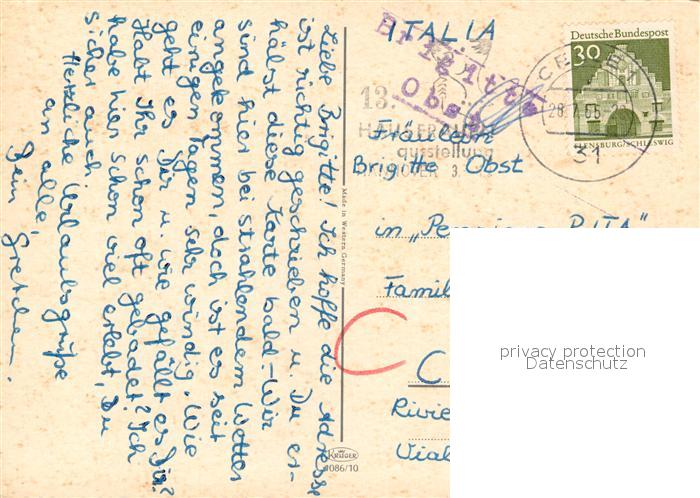 Liebe Brigitte! Ich hoffe die Adresse
ist richtig geschrieben u. Du er-
hälst diese Karte bald.- Wir
sind hier bei strahlendem Wetter
angekommen, doch ist es seit
einigen Tagen sehr windig. Wie
geht es Dir u. wie gefällt es Dir?
Habt Ihr schon oft gebadet? Ich
habe hier schon viel erlebt, Du
sicher auch.
Herzliche Urlaubsgrüße
an alle,
Dein Gretchen.
Made in Western Germany
KRÜGER
1086/10
ITALIA
Brigitte
Obst
13.
ausstellung
3.
CELLE
31
Deutsche Bundespost
30
FLENSBURG/SCHLESWIG
Fräulein
Brigitte Obst
in „Pension RITA"
Famil
C
Rivie
Vial
privacy protection
Datenschutz